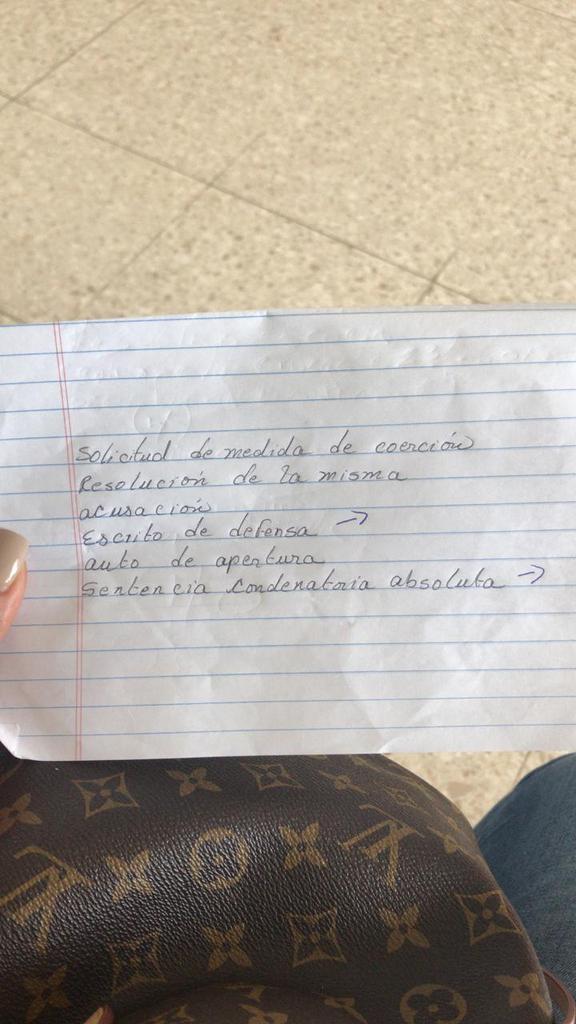 Solicitud de medida de coerción
Resolución de la misma
acusación
Escrito de defensa →
auto de apertura
Sentencia Condenatoria absoluta →